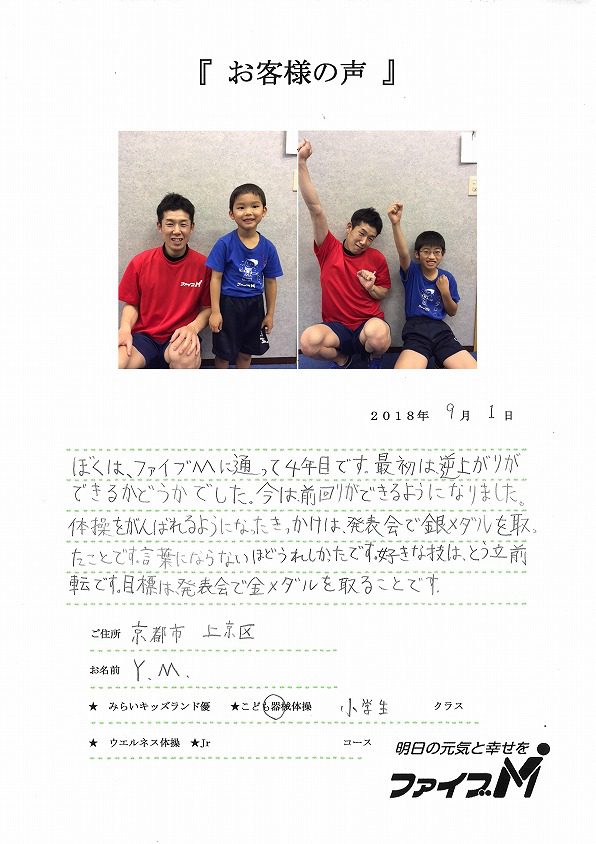 『 お客様の声 』
ファイブM
ファイブM
2018年 9月 1日
ぼくは、ファイブMに通って4年目です。最初は逆上がりが
できるかどうかでした。今は前回りができるようになりました。
体操をがんばれるようになったきっかけは、発表会で銀メダルを取っ
たことです。言葉にならないほどうれしかったです。好きな技は、とう立前
転です。目標は発表会で金メダルを取ることです。
ご住所 京都市 上京区
お名前 Y.M.
★ みらいキッズランド優 ★こども器械体操 小学生 クラス
★ ウエルネス体操 ★Jr コース
明日の元気と幸せを
ファイブM